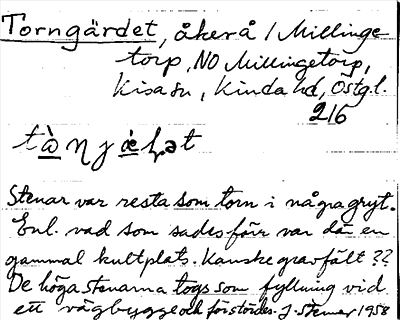 Torngärdet, åker å 1 Millinge
torp, NO Millingetorp,
Kisa sn, Kinda hd, Östgl.
216
Stenar var resta som torn i några gryt.
Enl. vad som sades förr var där en
gammal kultplats. Kanske gravfält ??
De höga stenarna togs som fyllning vid
ett vägbygge och förstördes. J. Stenier 1958